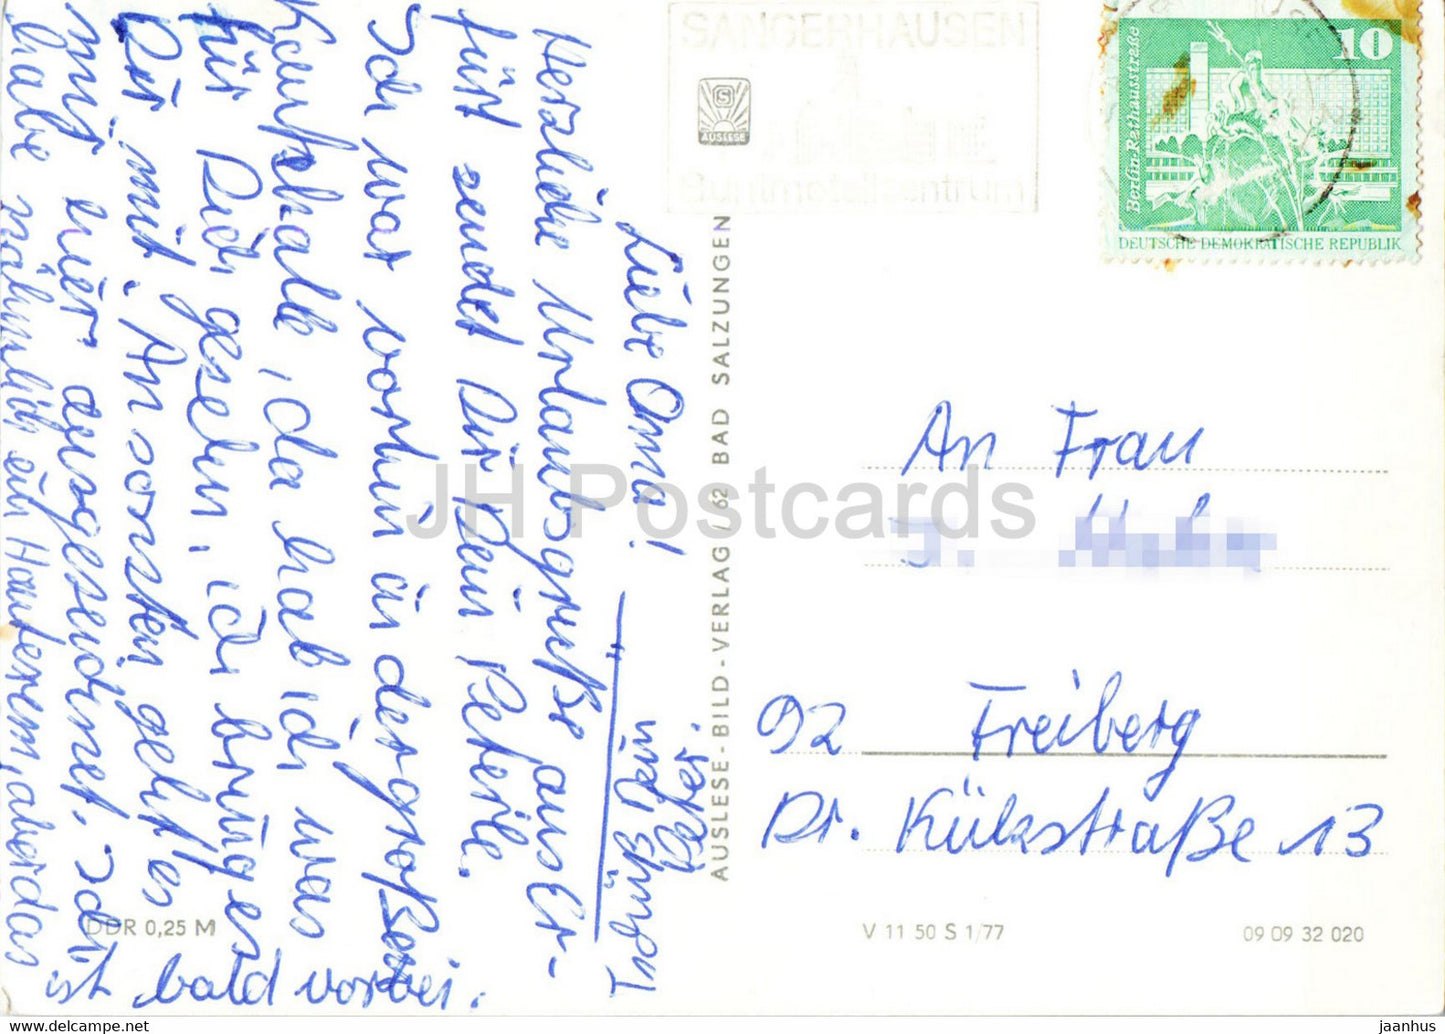 Liebe Oma!
Herzliche Urlaubsgrüße aus Er-
furt sendet Dir Dein Peterle.
Ich war vorhin in der großen
Kaufhalle, da hab ich was
für Dich gesehn, ich bring es
Dir mit. Ansonsten geht es
mir hier ausgezeichnet. Ich
habe nämlich ein Hauterem, aber das
ist bald vorbei.
Tschüß Oma
und
Peter.
SANGERHAUSEN
Buntmetallzentrum
AUSLESE
AUSLESE-BILD-VERLAG / 62 BAD SALZUNGEN
10
Berlin-Rathausstraße
DEUTSCHE DEMOKRATISCHE REPUBLIK
An Frau
J.
92 Freiberg
Dr. Külzstraße 13
DDR 0,25 M
V 11 50 S 1/77
09 09 32 020
JH Postcards
jaanhus
www.delcampe.net